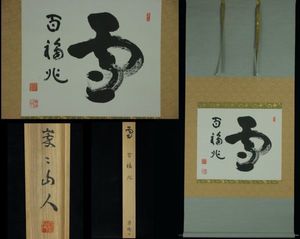 雪
百福兆
雪
百福兆
山人
雪 百福兆